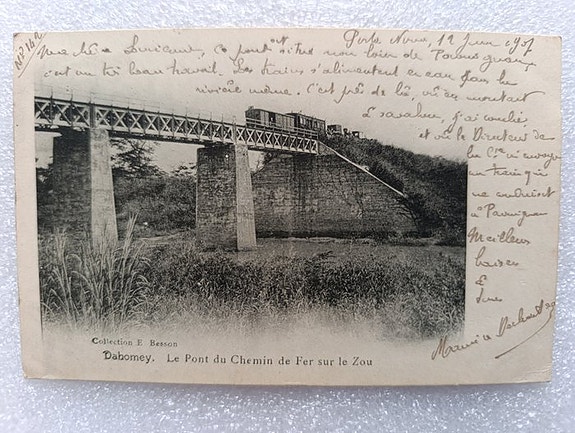 Nº 142
Porto Novo, 12 Juin 1907
Ma chère Lucienne, ce pont situé non loin de Paouignan,
est un très beau travail. Les trains s'alimentent en eau dans la
rivière même. C'est près de là, en montant
à Savalou, j'ai couché
et vu le Directeur de
la Cie qui
un train qui
me conduisit
à Paouignan
Meilleurs
baisers
Maurice
Collection E. Besson
Dahomey. Le Pont du Chemin de Fer sur le Zou